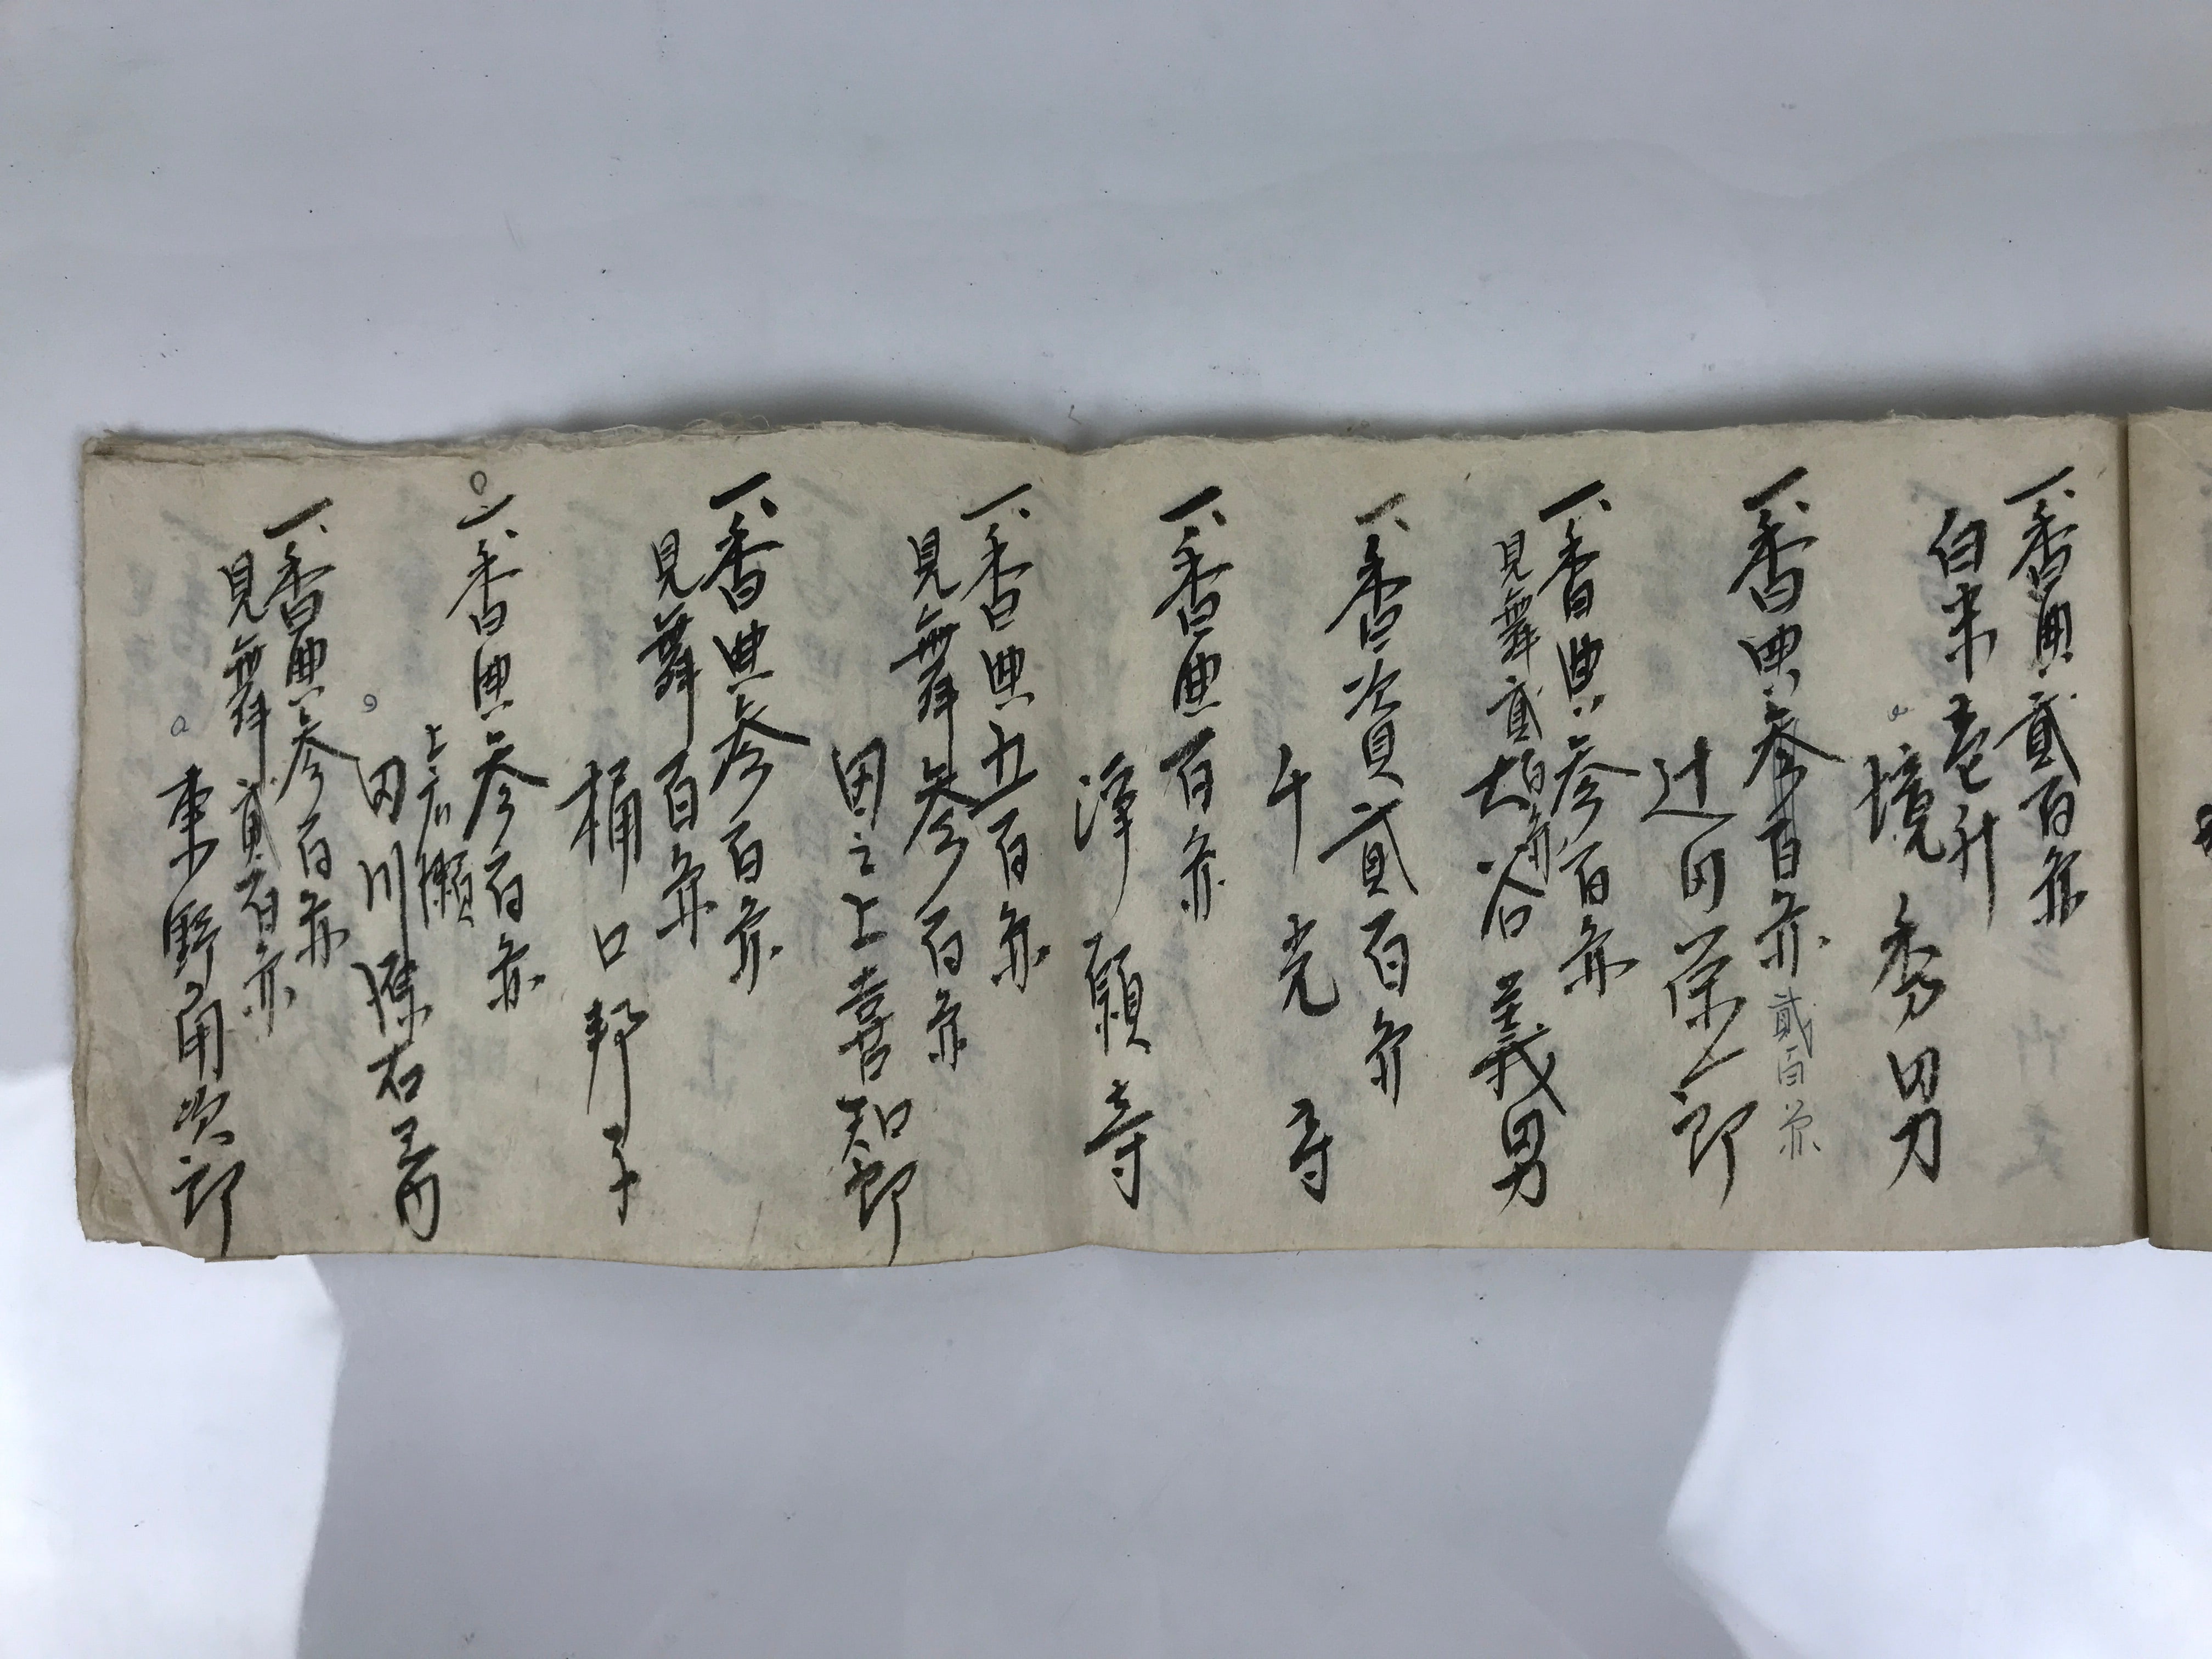 一、香典貳百円
白米壱升
境秀男
一、香典参百円 貳百円
辻田栄一郎
一、香典参百円
見舞貳百円
大谷義男
一、香資貳百円
千光寺
一、香典百円
浄願寺
一、香典五百円
見舞参百円
田之上喜知郎
一、香典参百円
見舞百円
桶口邦子
一、香典参百円
上石瀬
田川 右
一、香典参百円
見舞貳百円
東野角次郎